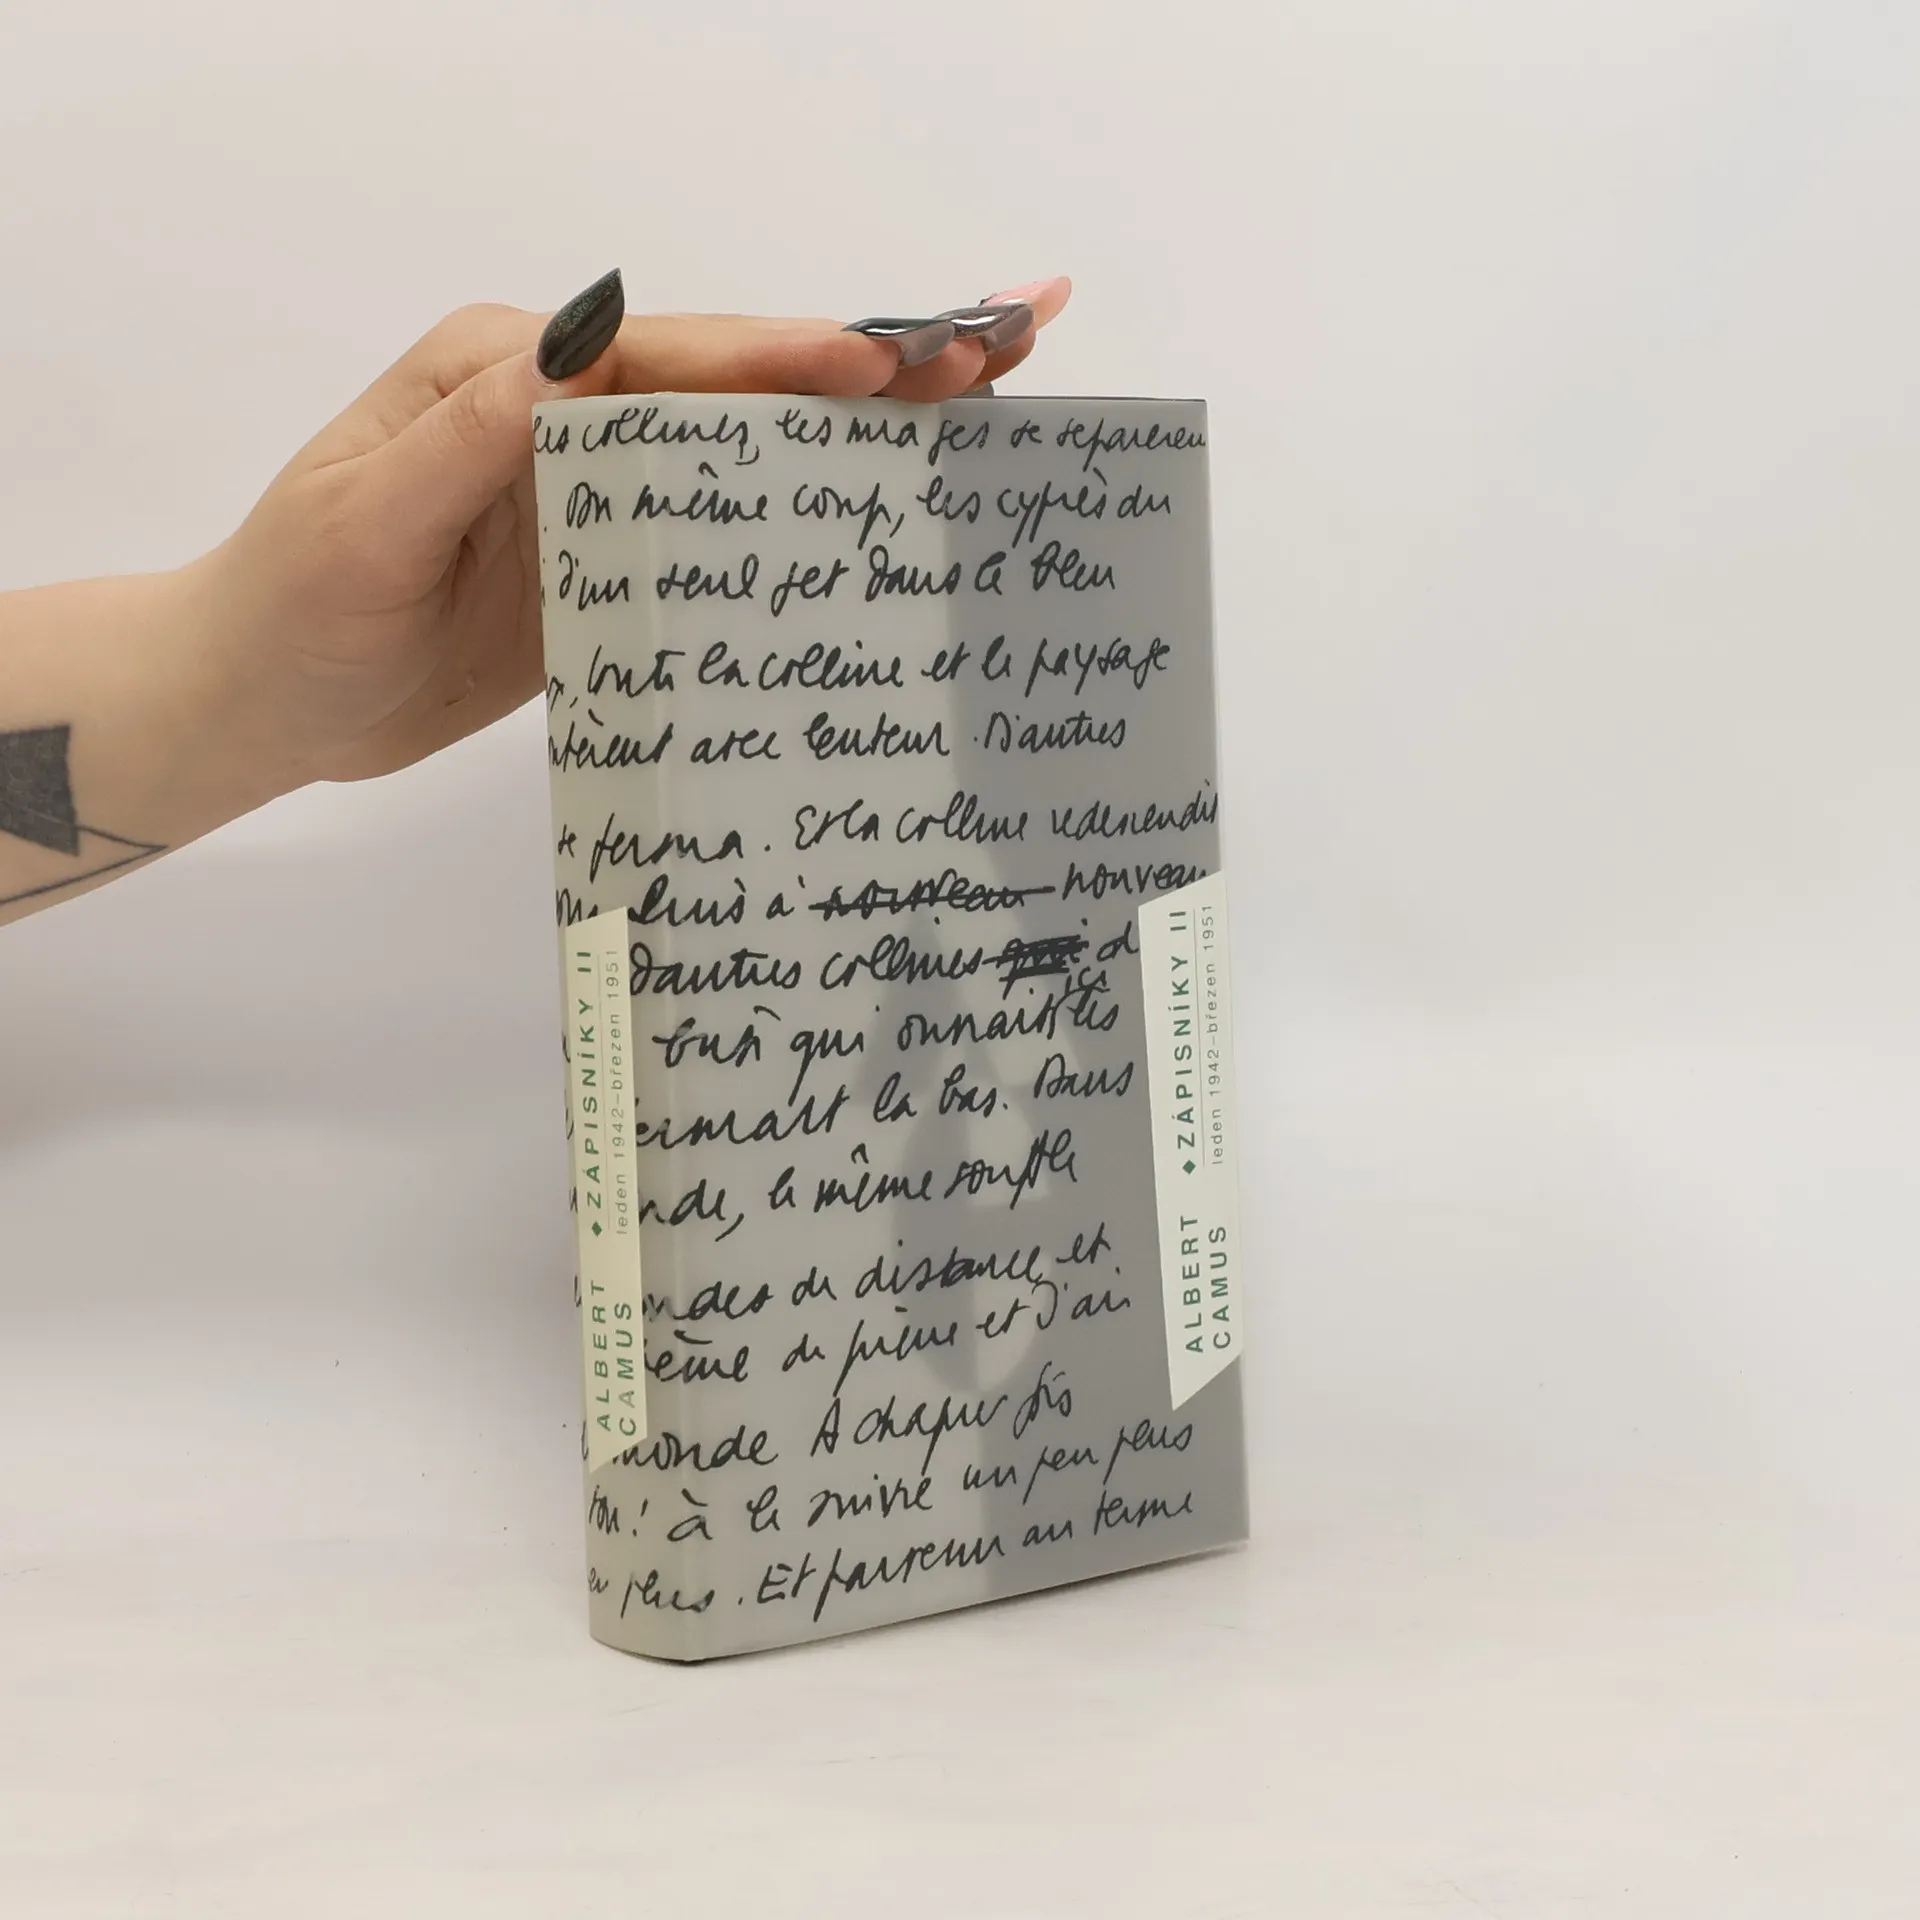 les collines, les nuages se séparèren
. Du même coup, les cyprès du
d'un seul jet dans le bleu
, toute la colline et le paysage
avec lenteur. D'autres
se ferma. Et la colline redescendit
puis à nouveau nouveau
d'autres collines qui d
qui ici les
là bas. Dans
nde, le même souffle
ndes de distance et
de pierre et j'ai
monde A chaque fois
! à le suivre un peu plus
en plus. Et parvenu au terme
ALBERT CAMUS
◆ZÁPISNÍKY II
leden 1942–březen 1951
ALBERT CAMUS
◆ZÁPISNÍKY II
leden 1942–březen 1951